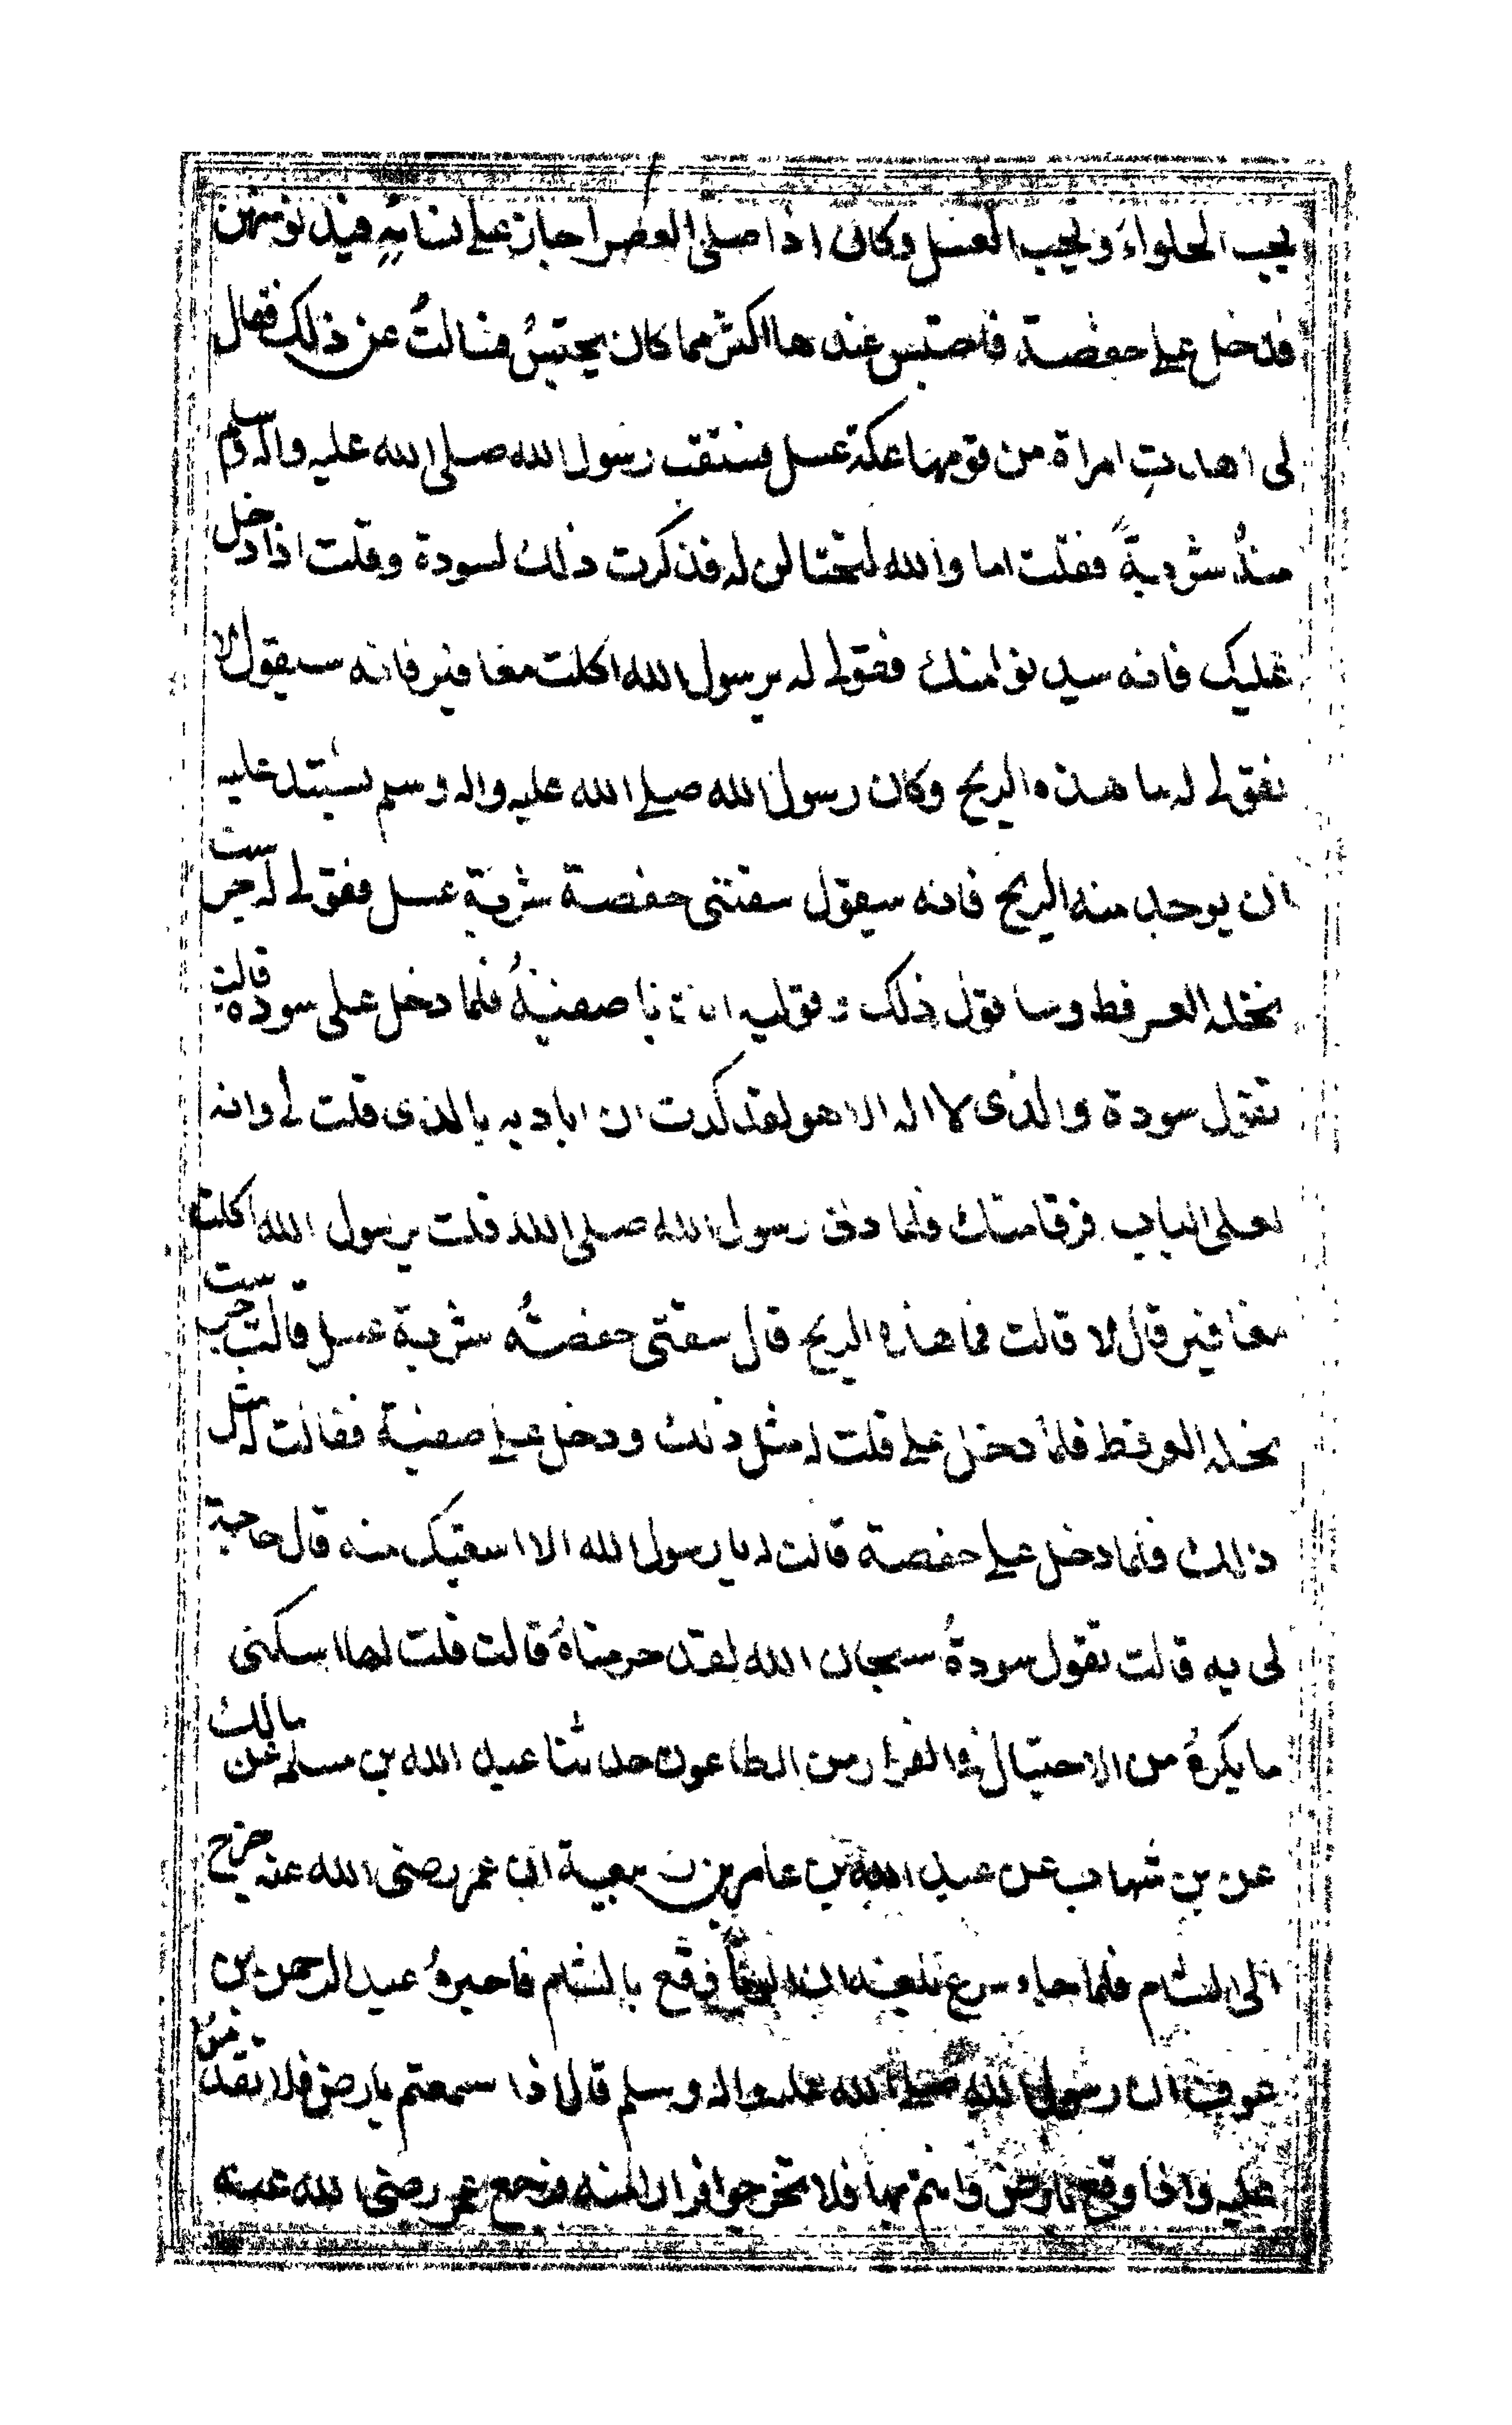 يحب الحلواء ويحب العسل وكان اذا صلى العصر اجاز على نسائه فيدنو منهن
فدخل على حفصة فاحتبس عندها اكثر مما كان يحتبس فسالت عن ذلك فقال
لى اهدت امراة من قومها عكة عسل فسقت رسول الله صلى الله عليه واله وسلم
منه شربة فقلت اما والله لنحتالن له فذكرت ذلك لسودة وقلت اذا دخل
عليك فانه سيدنو منك فقولى له يرسول الله اكلت مغافير فانه سيقول لا
فقولى له ما هذه الريح وكان رسول الله صلى الله عليه واله وسلم يشتد عليه
ان يوجد منه الريح فانه سيقول سقتنى حفصة شربة عسل فقولى له جرست
نحله العرفط وساقول ذلك وقوليه انت يا صفية فلما دخل على سودة قالت
تقول سودة والذى لا اله الا هو لقد كدت ان اباديه بالذى قلت لى وانه
لعلى الباب فرقا منك فلما دنى رسول الله صلى الله قلت يرسول الله اكلت
مغافير قال لا قالت فما هذه الريح قال سقتنى حفصة شربة عسل قالت جرست
نحله العرفط فلما دخل على قلت له مثل ذلك ودخل على صفية فقالت له مثل
ذالك فلما دخل على حفصة قالت له يا رسول الله الا اسقيك منه قال لا حاجة
لى به قالت تقول سودة سبحان الله لقد حرمناه قالت قلت لها اسكتى
ما يكره من الاحتيال فى الفرار من الطاعون حدثنا عبد الله بن مسلمه عن مالك
عن بن شهاب عن عبد الله بن عامر بن ربيعة ان عمر رضى الله عنه خرج
الى الشام فلما جاء سرغ بلغه ان الوبا وقع بالشام فاخبره عبد الرحمن بن
عوف ان رسول الله صلى الله عليه واله وسلم قال اذا سمعتم بارض فلا تقدموا
عليه واذا وقع بارض وانتم بها فلا تخرجوا فرارا منه فرجع عمر رضى الله عنه